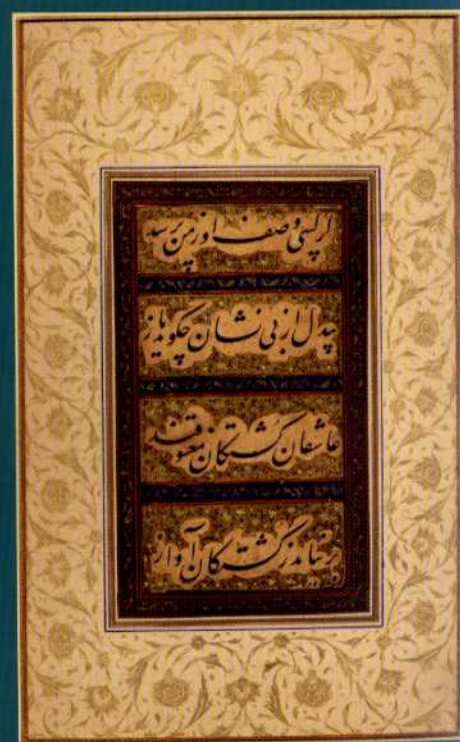 گر کسی وصف او ز من پرسد
بیدل از بی نشان چگوید باز
عاشقان کشتگان معشوقند
بر نیاید ز کشتگان آواز